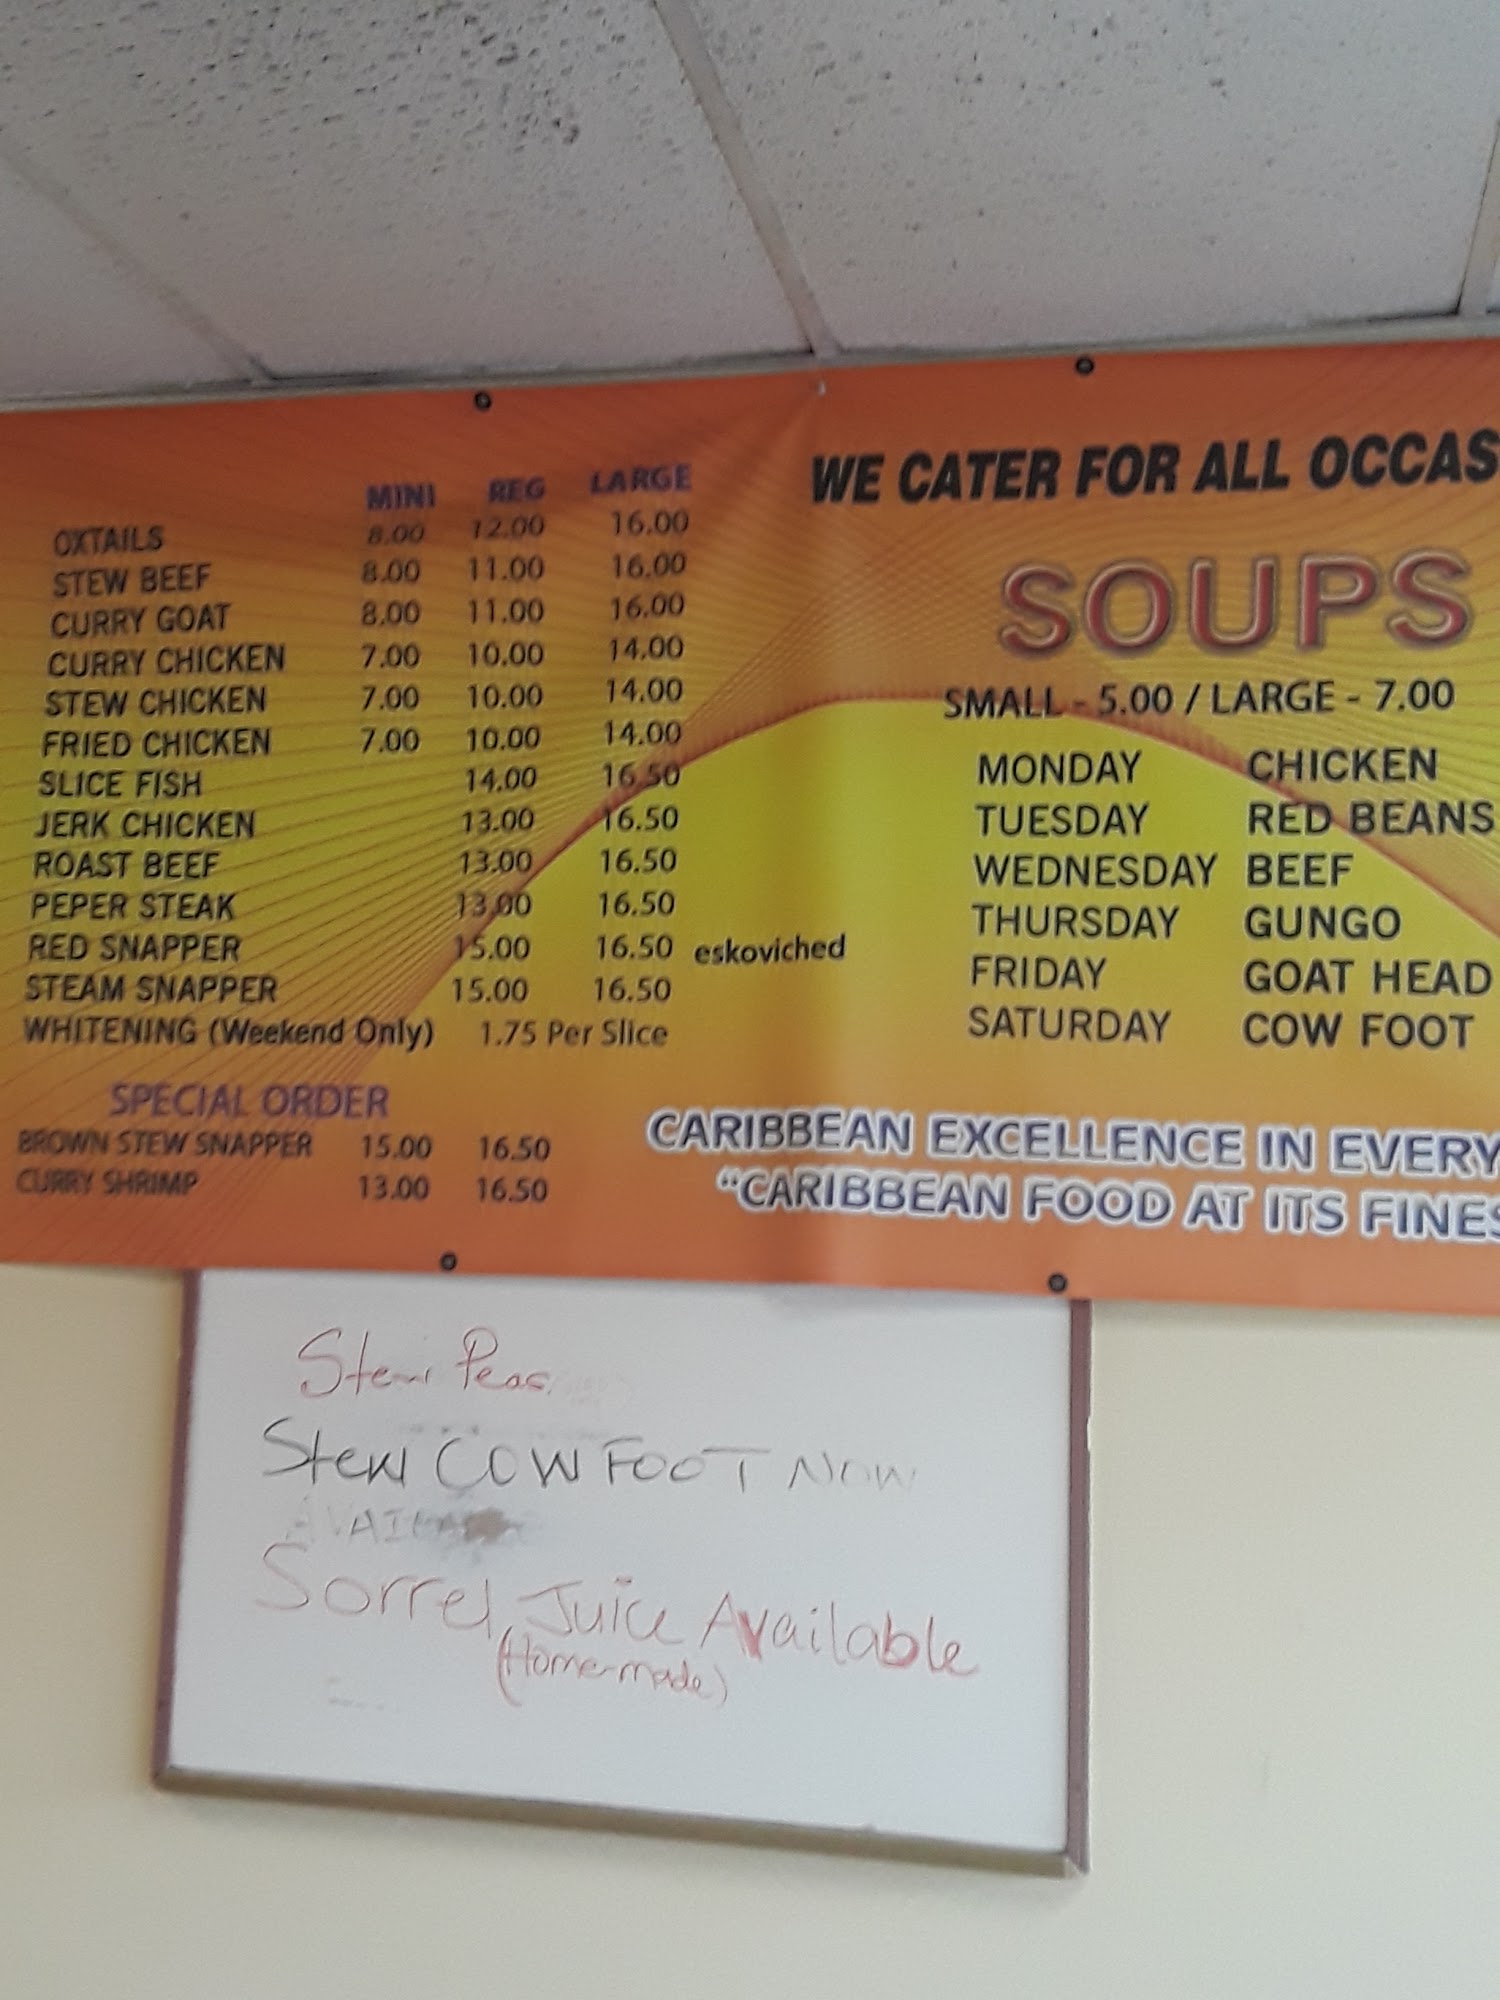 MINI REG LARGE
OXTAILS 8.00 12.00 16.00
STEW BEEF 8.00 11.00 16.00
CURRY GOAT 8.00 11.00 16.00
CURRY CHICKEN 7.00 10.00 14.00
STEW CHICKEN 7.00 10.00 14.00
FRIED CHICKEN 7.00 10.00 14.00
SLICE FISH 14.00 16.50
JERK CHICKEN 13.00 16.50
ROAST BEEF 13.00 16.50
PEPER STEAK 13.00 16.50
RED SNAPPER 15.00 16.50 eskoviched
STEAM SNAPPER 15.00 16.50
WHITENING (Weekend Only) 1.75 Per Slice
SPECIAL ORDER
BROWN STEW SNAPPER 15.00 16.50
CURRY SHRIMP 13.00 16.50
WE CATER FOR ALL OCCAS
SOUPS
SMALL - 5.00 / LARGE - 7.00
MONDAY CHICKEN
TUESDAY RED BEANS
WEDNESDAY BEEF
THURSDAY GUNGO
FRIDAY GOAT HEAD
SATURDAY COW FOOT
CARIBBEAN EXCELLENCE IN EVERY
"CARIBBEAN FOOD AT ITS FINES
Stew Peas
Stew COW FOOT NOW
Sorrel Juice Available
(Home-made)